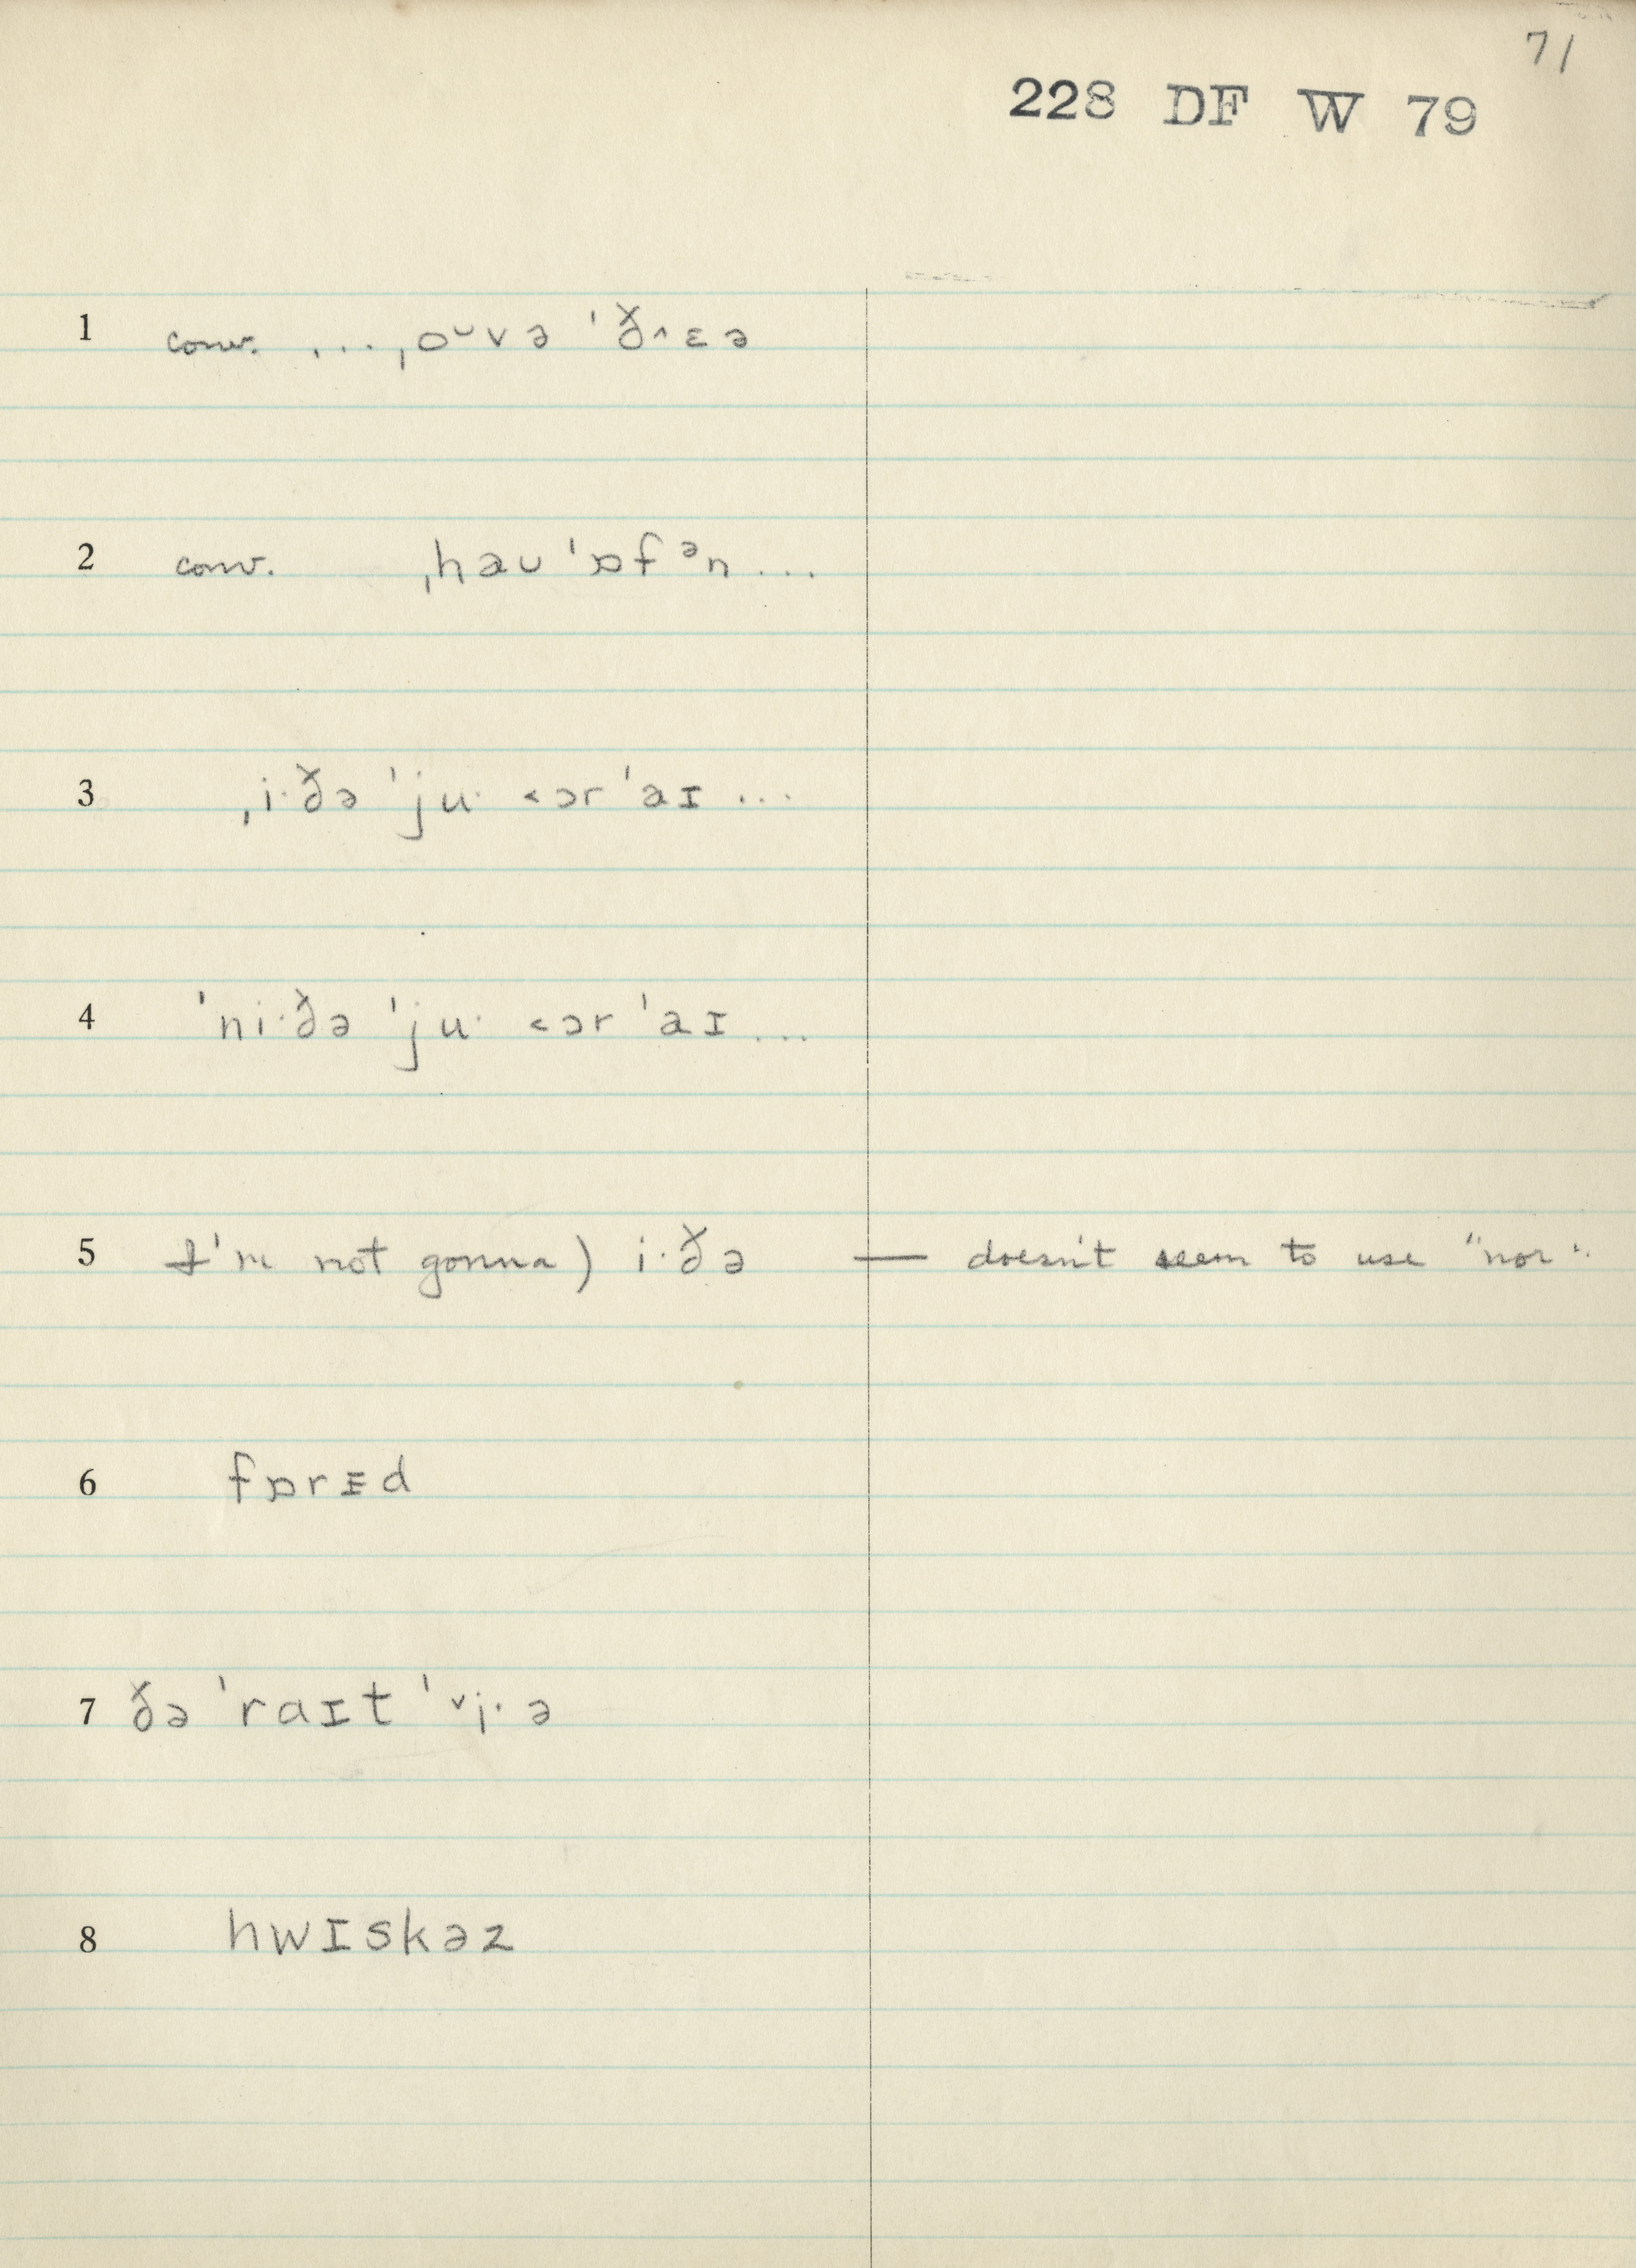 71
228 DF W 79
1 conv. ...ˌoᵕvə ˈð˄ɛə
2 conv. ˌhəʊˈɒfᵊn...
3 ˌi·ðə ˈju· ˂ɔr ˈaɪ ...
4 ˈni·ðə ˈju· ˂ɔr ˈaɪ ...
5 I'm not gonna) i·ðə — doesn't seem to use "nor".
6 fɒrᵻd
7 ðə ˈraɪt ˈ˅i·ə
8 hwɪskəz